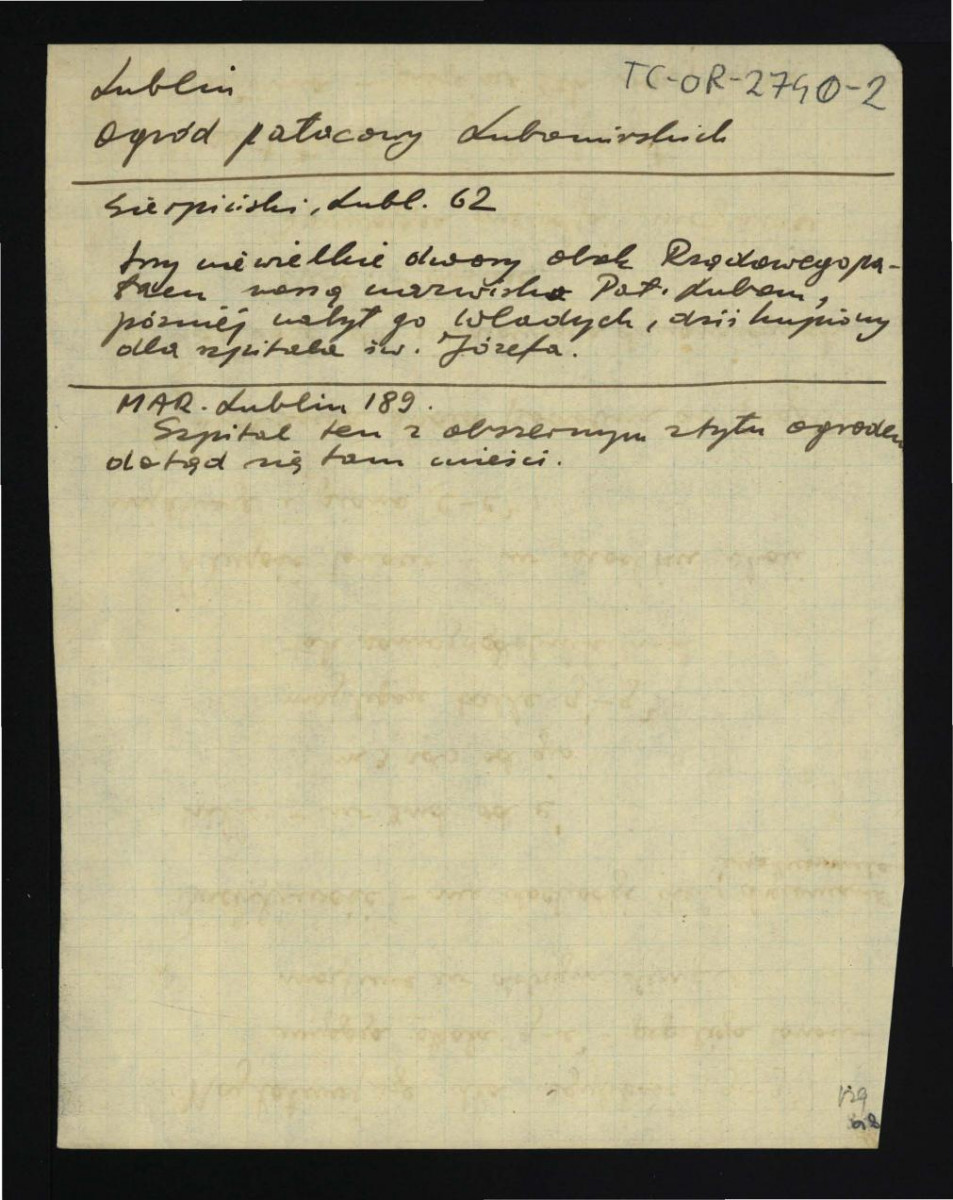 Lublin
TC-OR-2740-2
Ogród pałacowy Lubomirskich
Sierpiński, Lubl. 62
trzy niewielkie dwory obok Rządowego pa-
łacu noszą nazwisko Pał. Lubom,
później nabył go Władych, dziś kupiony
dla szpitala św. Józefa.
MAR. Lublin 189.
Szpital ten z obszernym z tyłu ogrodem
dotąd się tam mieści.